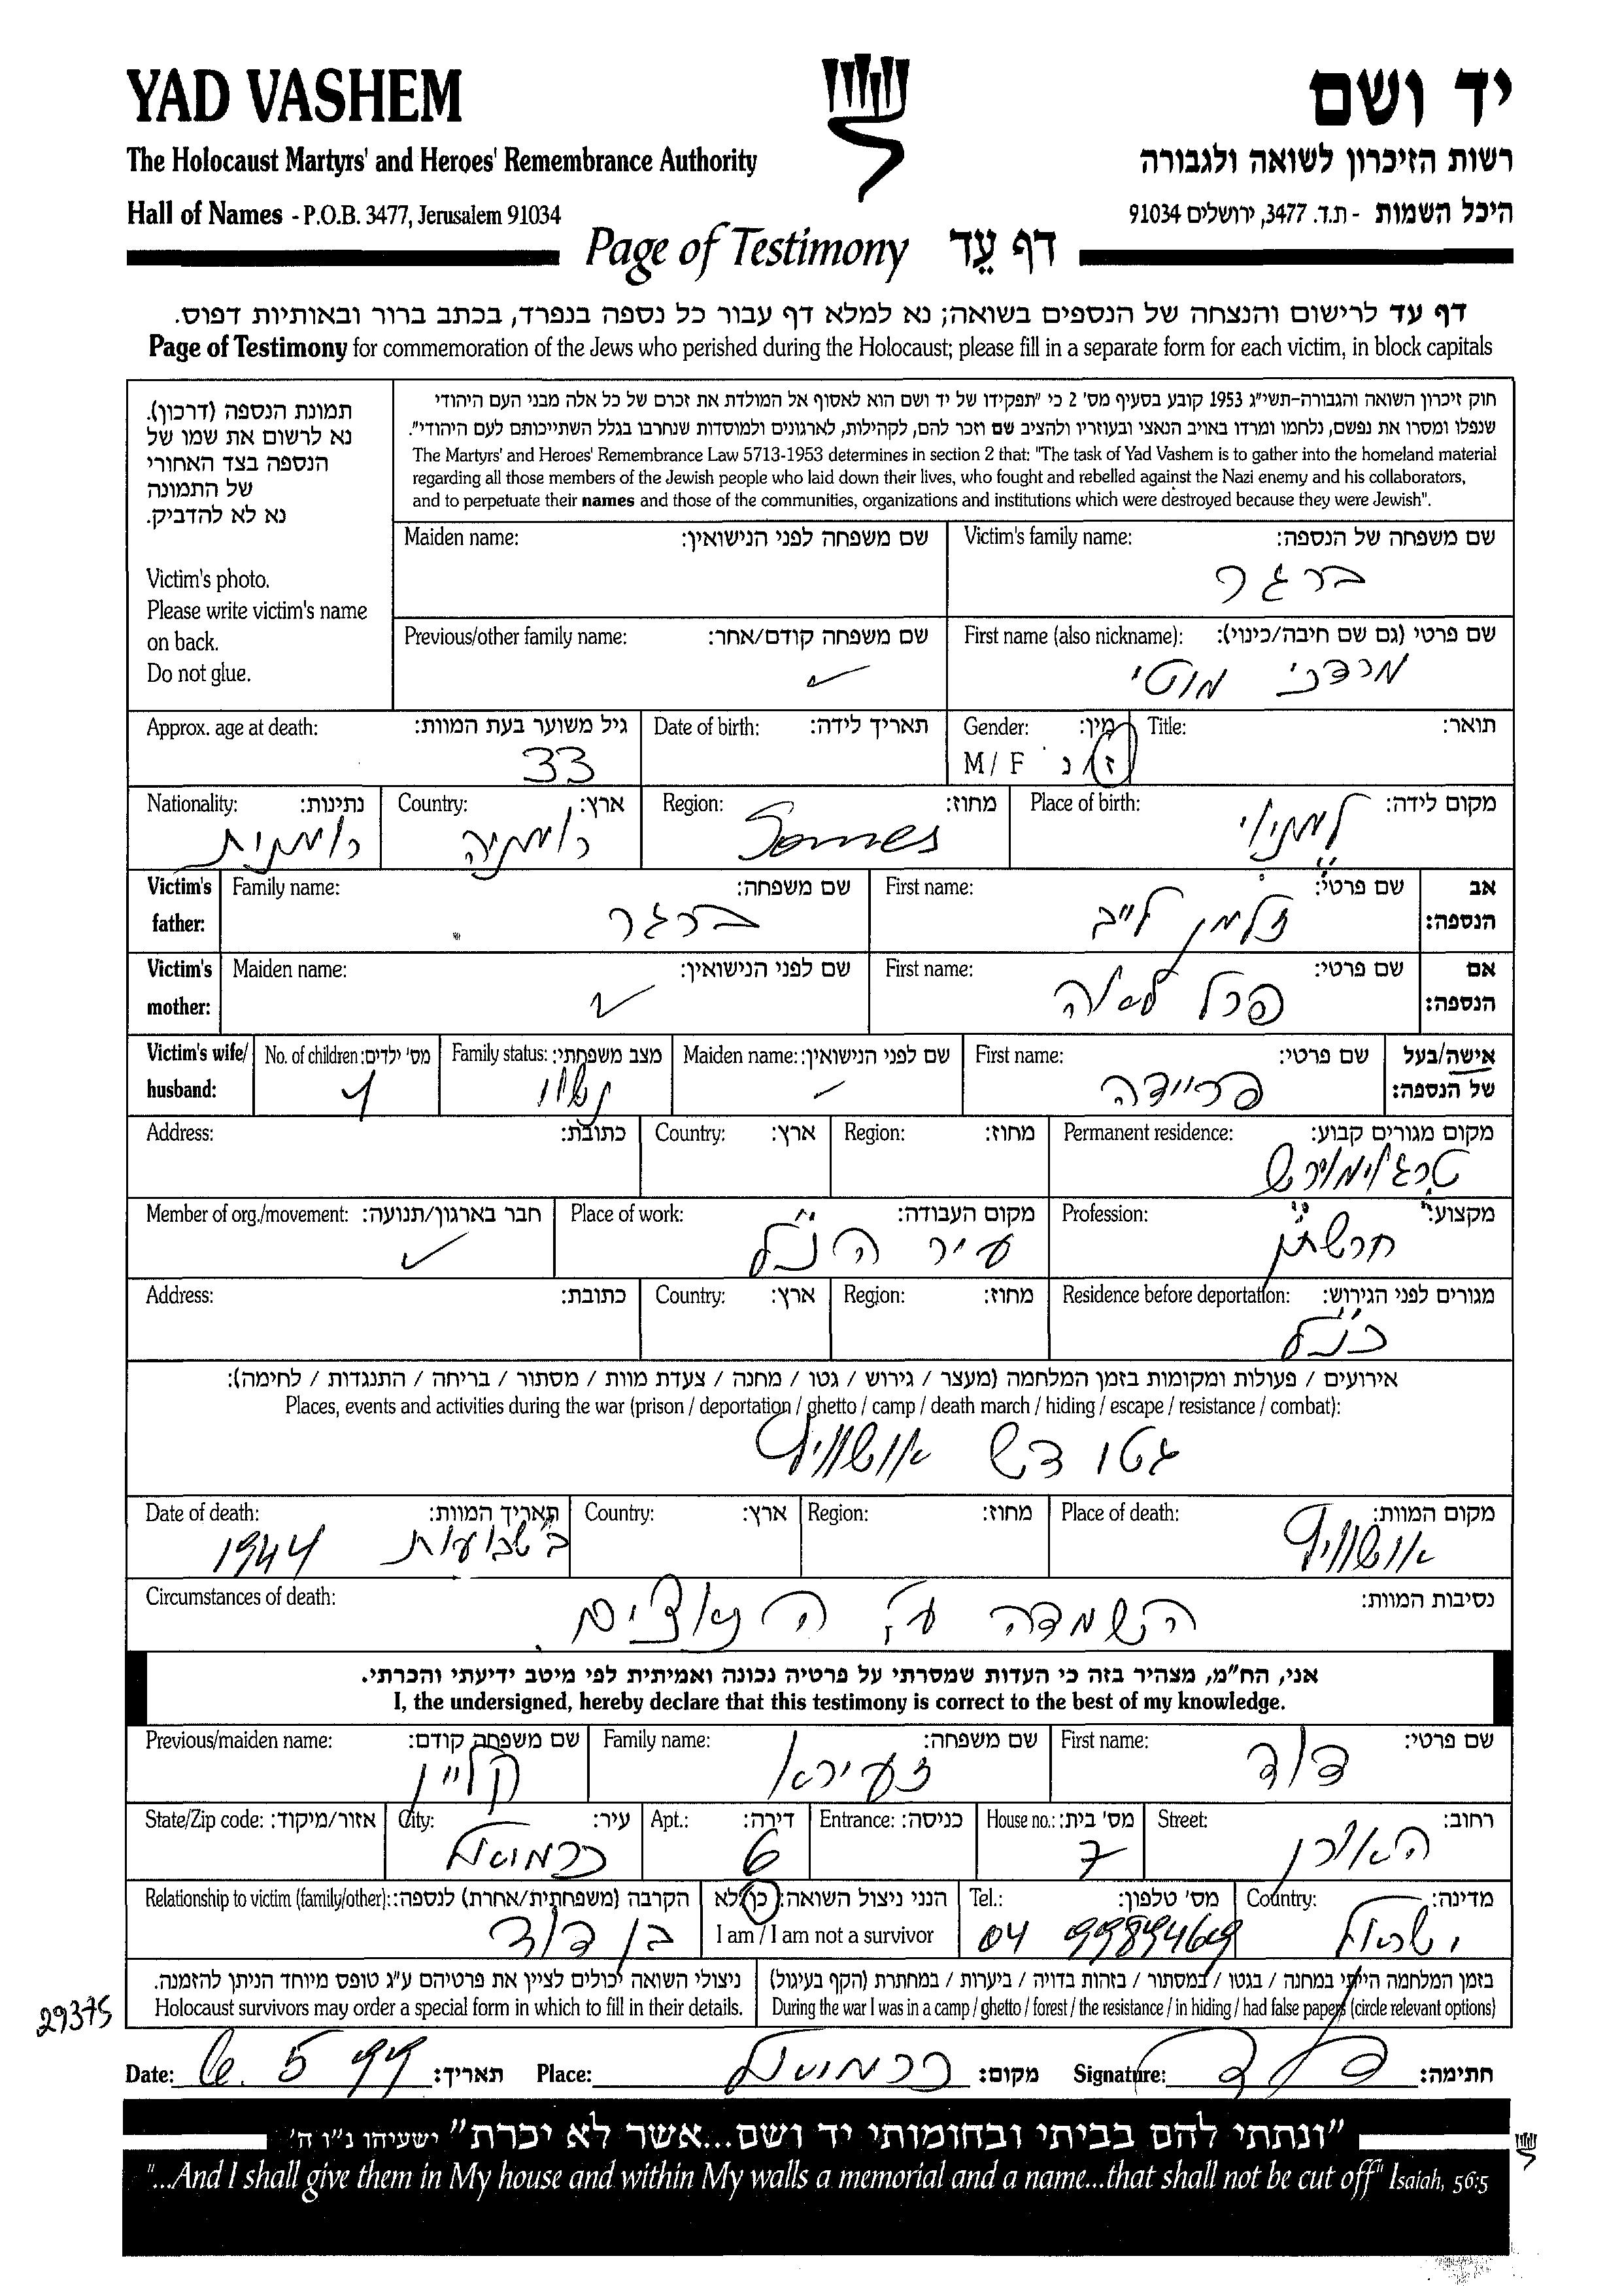 YAD VASHEM
יד ושם
The Holocaust Martyrs' and Heroes' Remembrance Authority
רשות הזיכרון לשואה ולגבורה
Hall of Names - P.O.B. 3477, Jerusalem 91034
היכל השמות - ת.ד. 3477, ירושלים 91034
Page of Testimony דף עֵד
דף עד לרישום והנצחה של הנספים בשואה; נא למלא דף עבור כל נספה בנפרד, בכתב ברור ובאותיות דפוס.
Page of Testimony for commemoration of the Jews who perished during the Holocaust; please fill in a separate form for each victim, in block capitals
תמונת הנספה (דרכון).
נא לרשום את שמו של
הנספה בצד האחורי
של התמונה
נא לא להדביק.
Victim's photo.
Please write victim's name
on back.
Do not glue.
חוק זיכרון השואה והגבורה-תשי"ג 1953 קובע בסעיף מס' 2 כי "תפקידו של יד ושם הוא לאסוף אל המולדת את זכרם של כל אלה מבני העם היהודי
שנפלו ומסרו את נפשם, נלחמו ומרדו באויב הנאצי ובעוזריו ולהציב שם וזכר להם, לקהילות, לארגונים ולמוסדות שנחרבו בגלל השתייכותם לעם היהודי".
The Martyrs' and Heroes' Remembrance Law 5713-1953 determines in section 2 that: "The task of Yad Vashem is to gather into the homeland material
regarding all those members of the Jewish people who laid down their lives, who fought and rebelled against the Nazi enemy and his collaborators,
and to perpetuate their names and those of the communities, organizations and institutions which were destroyed because they were Jewish".
Victim's family name: שם משפחה של הנספה:
ברגר
Maiden name: שם משפחה לפני הנישואין:
First name (also nickname): שם פרטי (גם שם חיבה/כינוי):
מרדכי מוטי
Previous/other family name: שם משפחה קודם/אחר:
Title: תואר:
Gender: מין:
M / F ז / נ
Date of birth: תאריך לידה:
Approx. age at death: גיל משוער בעת המוות:
33
Place of birth: מקום לידה:
Region: מחוז:
Somes
Country: ארץ:
רומניה
Nationality: נתינות:
רומנית
Victim's father: אב הנספה:
First name: שם פרטי:
זלמן לייב
Family name: שם משפחה:
ברגר
Victim's mother: אם הנספה:
First name: שם פרטי:
פרל לאה
Maiden name: שם לפני הנישואין:
Victim's wife/ husband: אישה/בעל של הנספה:
First name: שם פרטי:
פריידה
Maiden name: שם לפני הנישואין:
Family status: מצב משפחתי:
נשוי
No. of children: מס' ילדים:
Permanent residence: מקום מגורים קבוע:
Region: מחוז:
Country: ארץ:
Address: כתובת:
Profession: מקצוע:
Place of work: מקום העבודה:
עיר הנ"ל
Member of org./movement: חבר בארגון/תנועה:
Residence before deportation: מגורים לפני הגירוש:
כנ"ל
Region: מחוז:
Country: ארץ:
Address: כתובת:
אירועים / פעולות ומקומות בזמן המלחמה (מעצר / גירוש / גטו / מחנה / צעדת מוות / מסתור / בריחה / התנגדות / לחימה):
Places, events and activities during the war (prison / deportation / ghetto / camp / death march / hiding / escape / resistance / combat):
גטו דש אושוויץ
Place of death: מקום המוות:
אושוויץ
Region: מחוז:
Country: ארץ:
Date of death: תאריך המוות:
בשבועות 1944
Circumstances of death: נסיבות המוות:
השמדה ע"י הנאצים.
אני, הח"מ, מצהיר בזה כי העדות שמסרתי על פרטיה נכונה ואמיתית לפי מיטב ידיעתי והכרתי.
I, the undersigned, hereby declare that this testimony is correct to the best of my knowledge.
First name: שם פרטי:
דוד
Family name: שם משפחה:
זעירא
Previous/maiden name: שם משפחה קודם:
קליין
Street: רחוב:
האורן
House no.: מס' בית:
7
Entrance: כניסה:
Apt.: דירה:
6
City: עיר:
כרמיאל
State/Zip code: אזור/מיקוד:
Country: מדינה:
ישראל
Tel.: מס' טלפון:
04
הנני ניצול השואה: כן/לא
I am / I am not a survivor
Relationship to victim (family/other): הקרבה (משפחתית/אחרת) לנספה:
בן דוד
בזמן המלחמה הייתי במחנה / בגטו / במסתור / בזהות בדויה / ביערות / במחתרת (הקף בעיגול)
During the war I was in a camp / ghetto / forest / the resistance / in hiding / had false papers (circle relevant options)
ניצולי השואה יכולים לציין את פרטיהם ע"ג טופס מיוחד הניתן להזמנה.
Holocaust survivors may order a special form in which to fill in their details.
29375
Date: 6. 5 99 תאריך: Place: כרמיאל מקום: Signature: חתימה:
"ונתתי להם בביתי ובחומותי יד ושם...אשר לא יכרת" ישעיהו נ"ו ה'
"...And I shall give them in My house and within My walls a memorial and a name...that shall not be cut off" Isaiah, 56:5